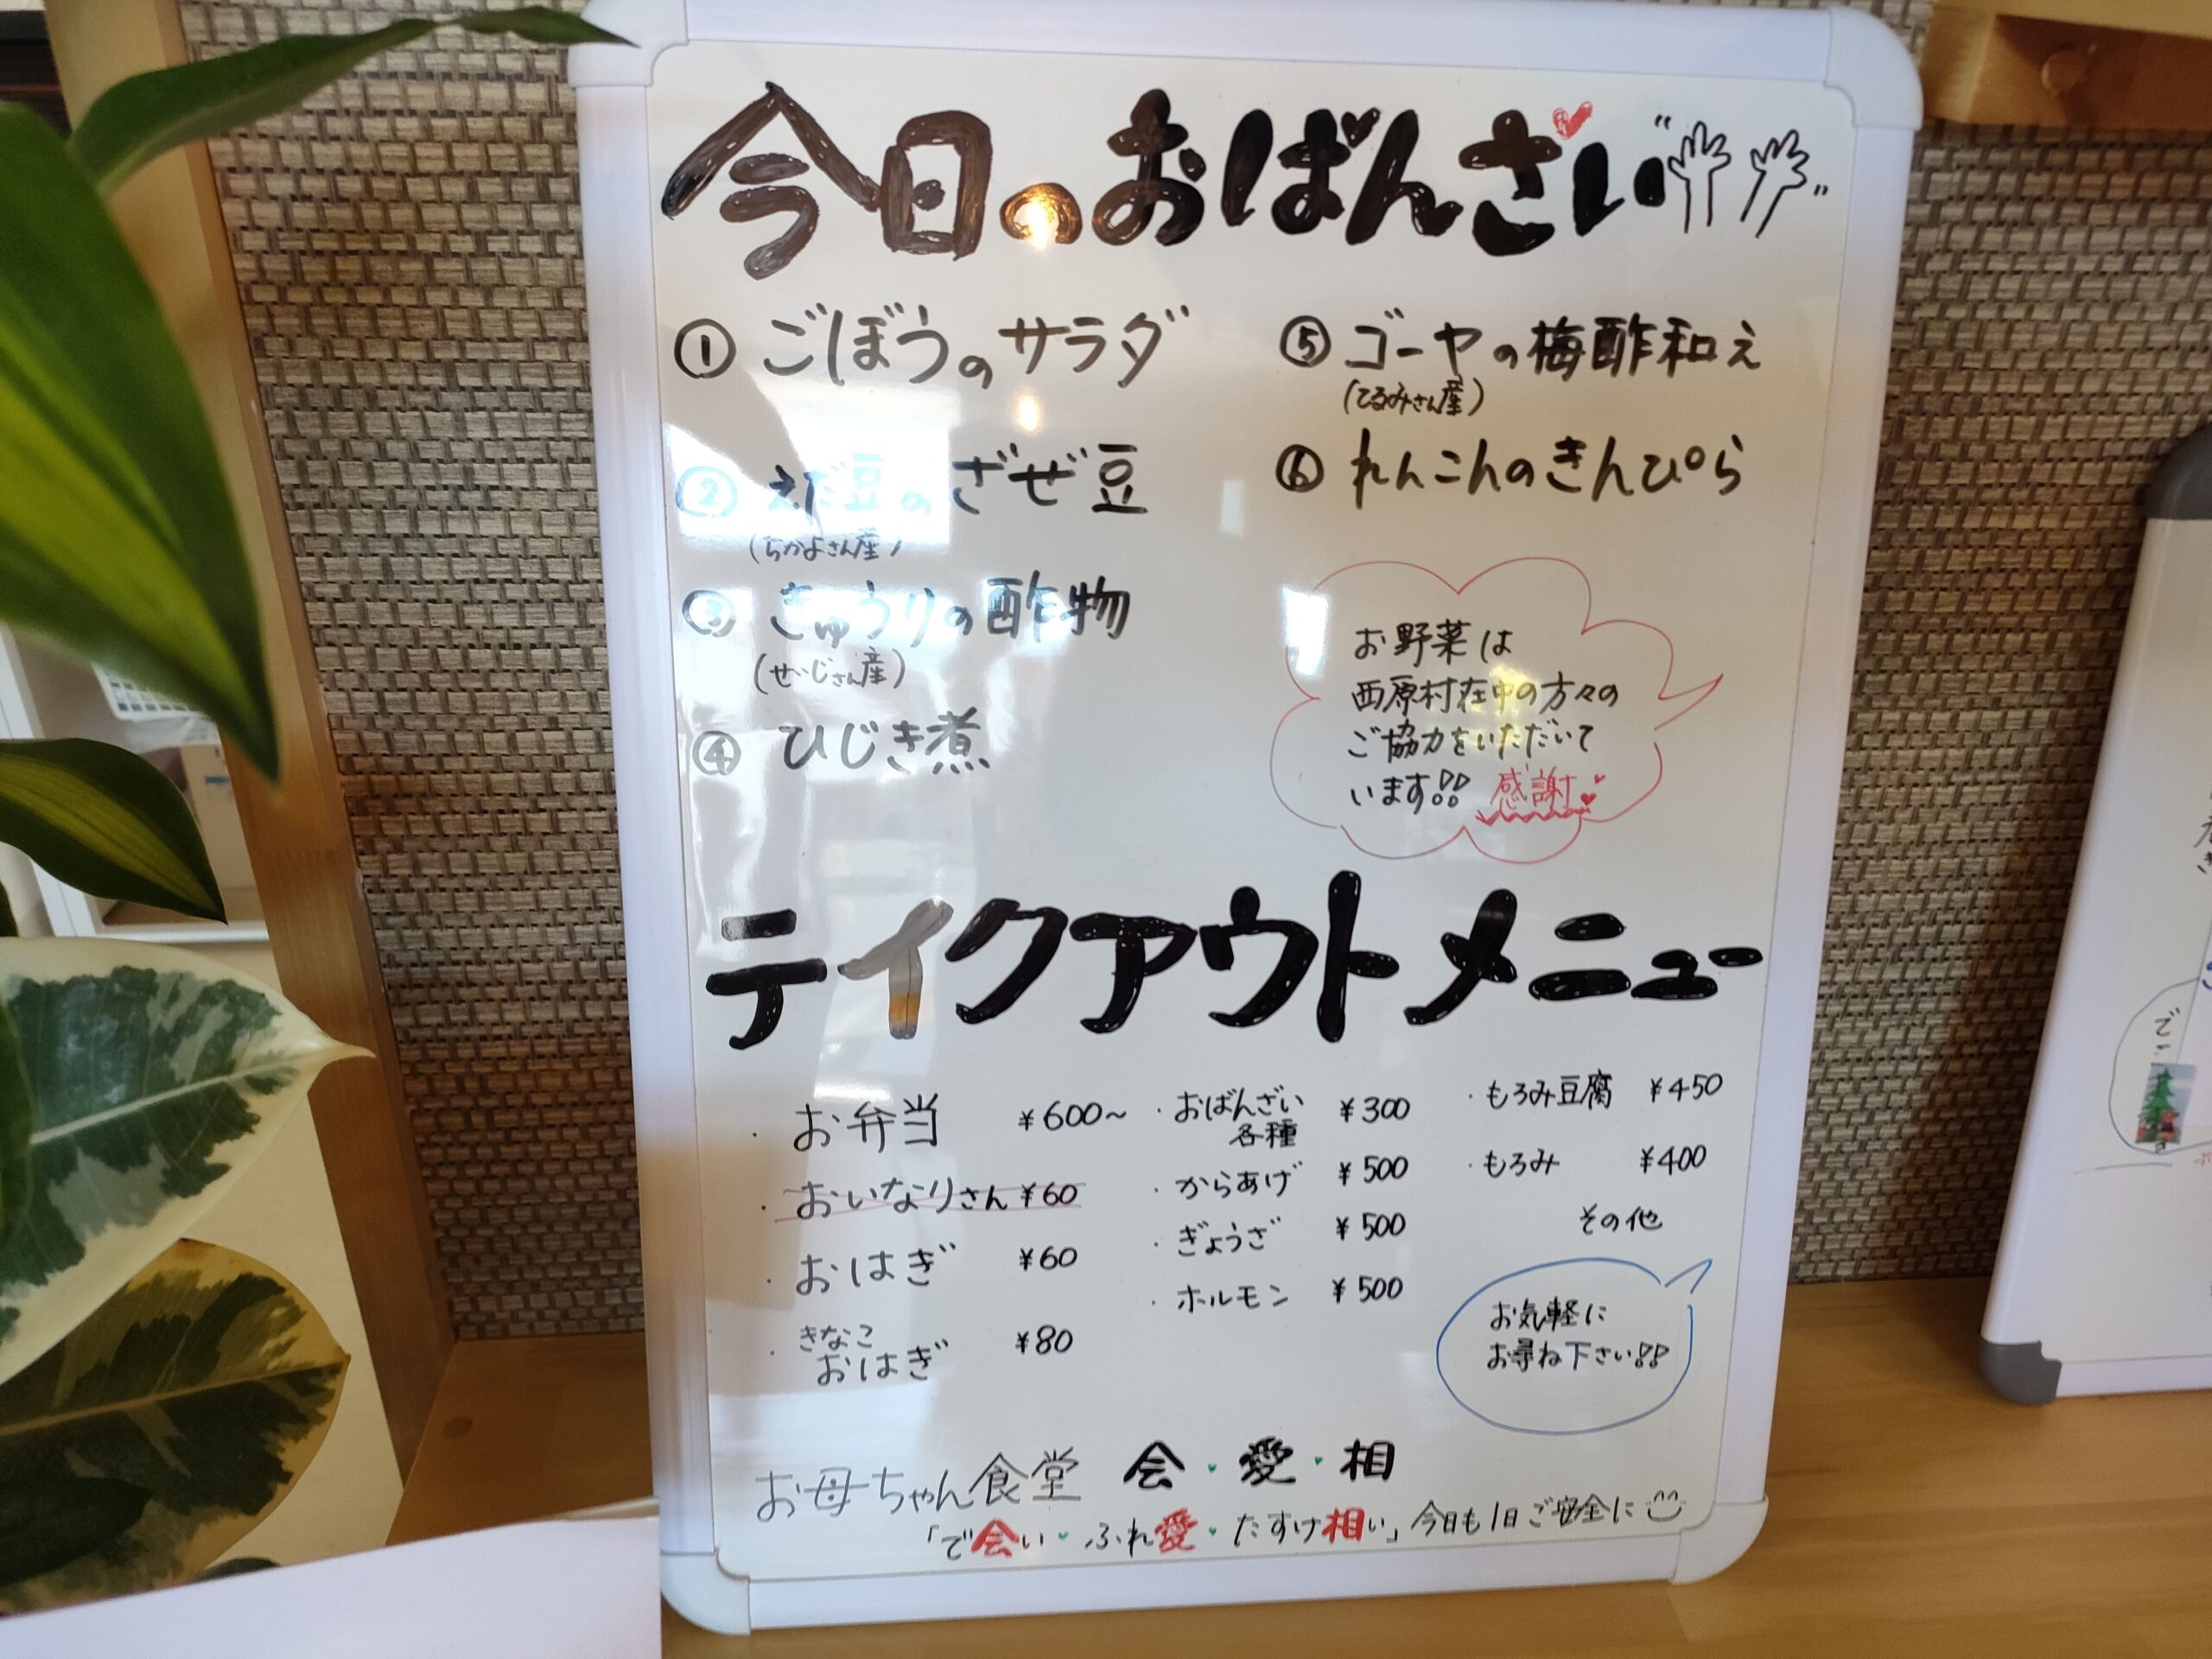 今日のおばんざい
① ごぼうのサラダ
② えだ豆のざぜ豆
(ちかよさん産)
③ きゅうりの酢物
(せいじさん産)
④ ひじき煮
⑤ ゴーヤの梅酢和え
(てるみさん産)
⑥ れんこんのきんぴら
お野菜は
西原村在中の方々の
ご協力をいただいて
います!! 感謝
テイクアウトメニュー
・お弁当 ¥600~
・おいなりさん ¥60
・おはぎ ¥60
・きなこ
おはぎ ¥80
・おばんざい
各種 ¥300
・からあげ ¥500
・ぎょうざ ¥500
・ホルモン ¥500
・もろみ豆腐 ¥450
・もろみ ¥400
その他
お気軽に
お尋ね下さい!!
お母ちゃん食堂 会・愛・相
「で会い・ふれ愛・たすけ相い」今日も1日ご安全に